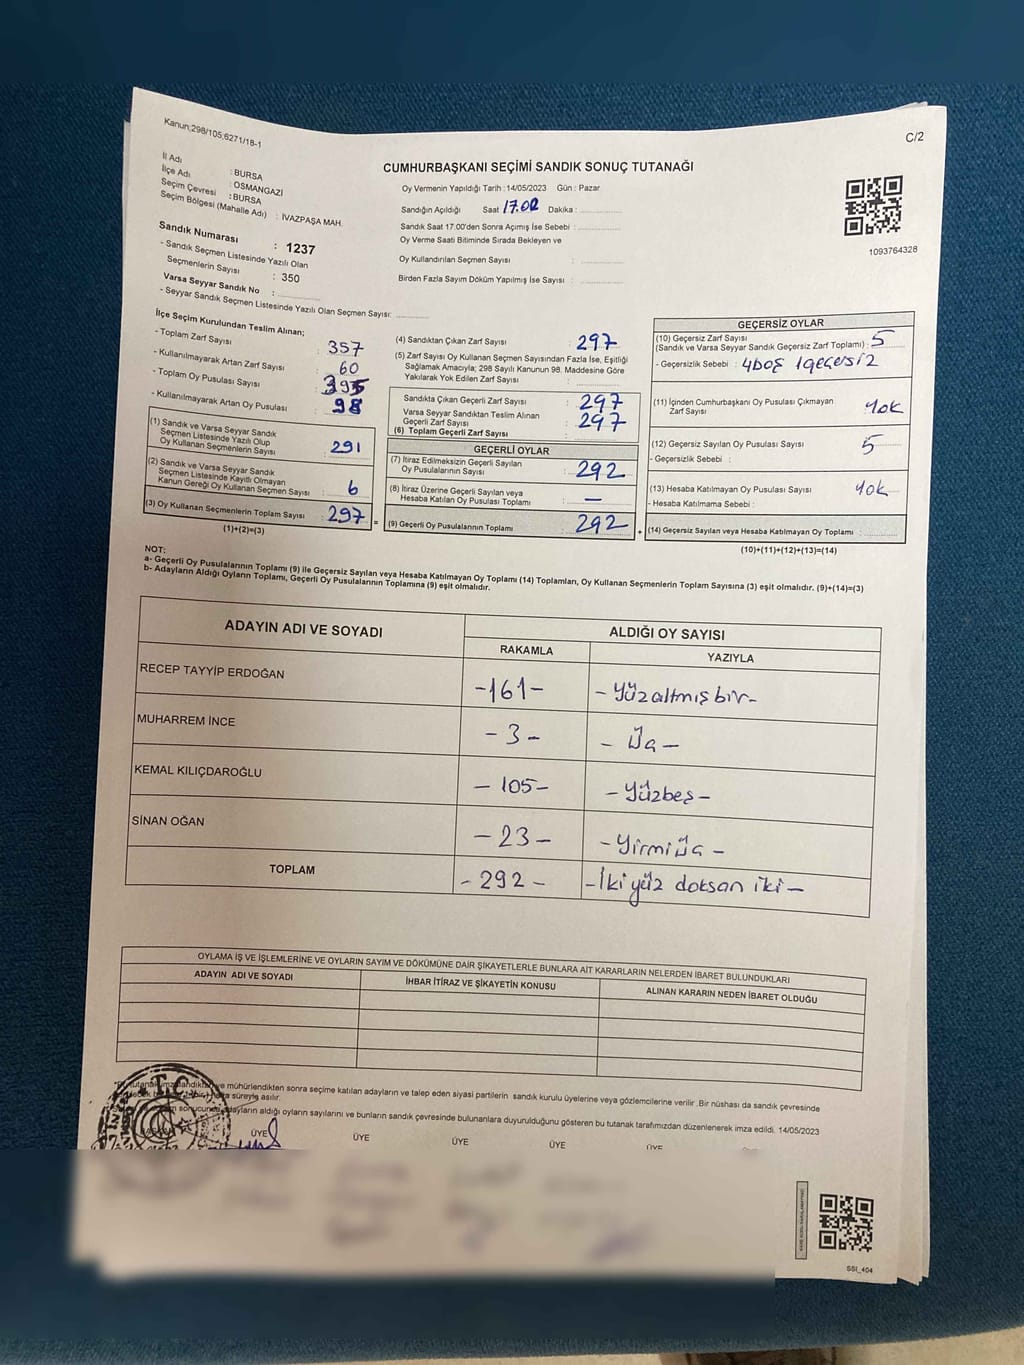 Kanun;298/105,6271/18-1
C/2
CUMHURBAŞKANI SEÇİMİ SANDIK SONUÇ TUTANAĞI
İl Adı : BURSA
İlçe Adı : OSMANGAZİ
Seçim Çevresi : BURSA
Seçim Bölgesi (Mahalle Adı) : İVAZPAŞA MAH.
Sandık Numarası : 1237
- Sandık Seçmen Listesinde Yazılı Olan
Seçmenlerin Sayısı : 350
Varsa Seyyar Sandık No :
- Seyyar Sandık Seçmen Listesinde Yazılı Olan Seçmen Sayısı:
Oy Vermenin Yapıldığı Tarih : 14/05/2023 Gün : Pazar
Sandığın Açıldığı Saat 17.02 Dakika :
Sandık Saat 17.00'den Sonra Açımış İse Sebebi :
Oy Verme Saati Bitiminde Sırada Bekleyen ve
Oy Kullandırılan Seçmen Sayısı :
Birden Fazla Sayım Döküm Yapılmış İse Sayısı :
1093764328
İlçe Seçim Kurulundan Teslim Alınan;
- Toplam Zarf Sayısı : 357
- Kullanılmayarak Artan Zarf Sayısı : 60
- Toplam Oy Pusulası Sayısı : 395
- Kullanılmayarak Artan Oy Pusulası : 98
(1) Sandık ve Varsa Seyyar Sandık
Seçmen Listesinde Yazılı Olup
Oy Kullanan Seçmenlerin Sayısı : 291
(2) Sandık ve Varsa Seyyar Sandık
Seçmen Listesinde Kayıtlı Olmayan
Kanun Gereği Oy Kullanan Seçmen Sayısı : 6
(3) Oy Kullanan Seçmenlerin Toplam Sayısı : 297
(1)+(2)=(3)
(4) Sandıktan Çıkan Zarf Sayısı : 297
(5) Zarf Sayısı Oy Kullanan Seçmen Sayısından Fazla İse, Eşitliği
Sağlamak Amacıyla; 298 Sayılı Kanunun 98. Maddesine Göre
Yakılarak Yok Edilen Zarf Sayısı :
Sandıkta Çıkan Geçerli Zarf Sayısı : 297
Varsa Seyyar Sandıktan Teslim Alınan
Geçerli Zarf Sayısı : 297
(6) Toplam Geçerli Zarf Sayısı :
GEÇERLİ OYLAR
(7) İtiraz Edilmeksizin Geçerli Sayılan
Oy Pusulalarının Sayısı : 292
(8) İtiraz Üzerine Geçerli Sayılan veya
Hesaba Katılan Oy Pusulaları Toplamı : —
(9) Geçerli Oy Pusulalarının Toplamı : 292
GEÇERSİZ OYLAR
(10) Geçersiz Zarf Sayısı
(Sandık ve Varsa Seyyar Sandık Geçersiz Zarf Toplamı) : 5
- Geçersizlik Sebebi : 4 boş 1 geçersiz
(11) İçinden Cumhurbaşkanı Oy Pusulası Çıkmayan
Zarf Sayısı : Yok
(12) Geçersiz Sayılan Oy Pusulası Sayısı : 5
- Geçersizlik Sebebi :
(13) Hesaba Katılmayan Oy Pusulası Sayısı : Yok
- Hesaba Katılmama Sebebi :
(14) Geçersiz Sayılan veya Hesaba Katılmayan Oy Toplamı :
(10)+(11)+(12)+(13)=(14)
NOT:
a- Geçerli Oy Pusulalarının Toplamı (9) ile Geçersiz Sayılan veya Hesaba Katılmayan Oy Toplamı (14) Toplamları, Oy Kullanan Seçmenlerin Toplam Sayısına (3) eşit olmalıdır. (9)+(14)=(3)
b- Adayların Aldığı Oyların Toplamı, Geçerli Oy Pusulalarının Toplamına (9) eşit olmalıdır.
ADAYIN ADI VE SOYADI ALDIĞI OY SAYISI
RAKAMLA YAZIYLA
RECEP TAYYİP ERDOĞAN -161- - Yüzaltmış bir -
MUHARREM İNCE - 3 - - Üç -
KEMAL KILIÇDAROĞLU - 105 - - Yüzbeş -
SİNAN OĞAN - 23 - - Yirmi üç -
TOPLAM - 292 - - İki yüz doksan iki -
OYLAMA İŞ VE İŞLEMLERİNE VE OYLARIN SAYIM VE DÖKÜMÜNE DAİR ŞİKAYETLERLE BUNLARA AİT KARARLARIN NELERDEN İBARET BULUNDUKLARI
ADAYIN ADI VE SOYADI İHBAR İTİRAZ VE ŞİKAYETİN KONUSU ALINAN KARARIN NEDEN İBARET OLDUĞU
ve mühürlendikten sonra seçime katılan adayların ve talep eden siyasi partilerin sandık kurulu üyelerine veya gözlemcilerine verilir. Bir nüshası da sandık çevresinde
süreyle asılır.
sonucunda adayların aldığı oyların sayılarını ve bunların sandık çevresinde bulunanlara duyurulduğunu gösteren bu tutanak tarafımızdan düzenlenerek imza edildi. 14/05/2023
T.C.
ÜYE ÜYE ÜYE ÜYE ÜYE
SSI_404